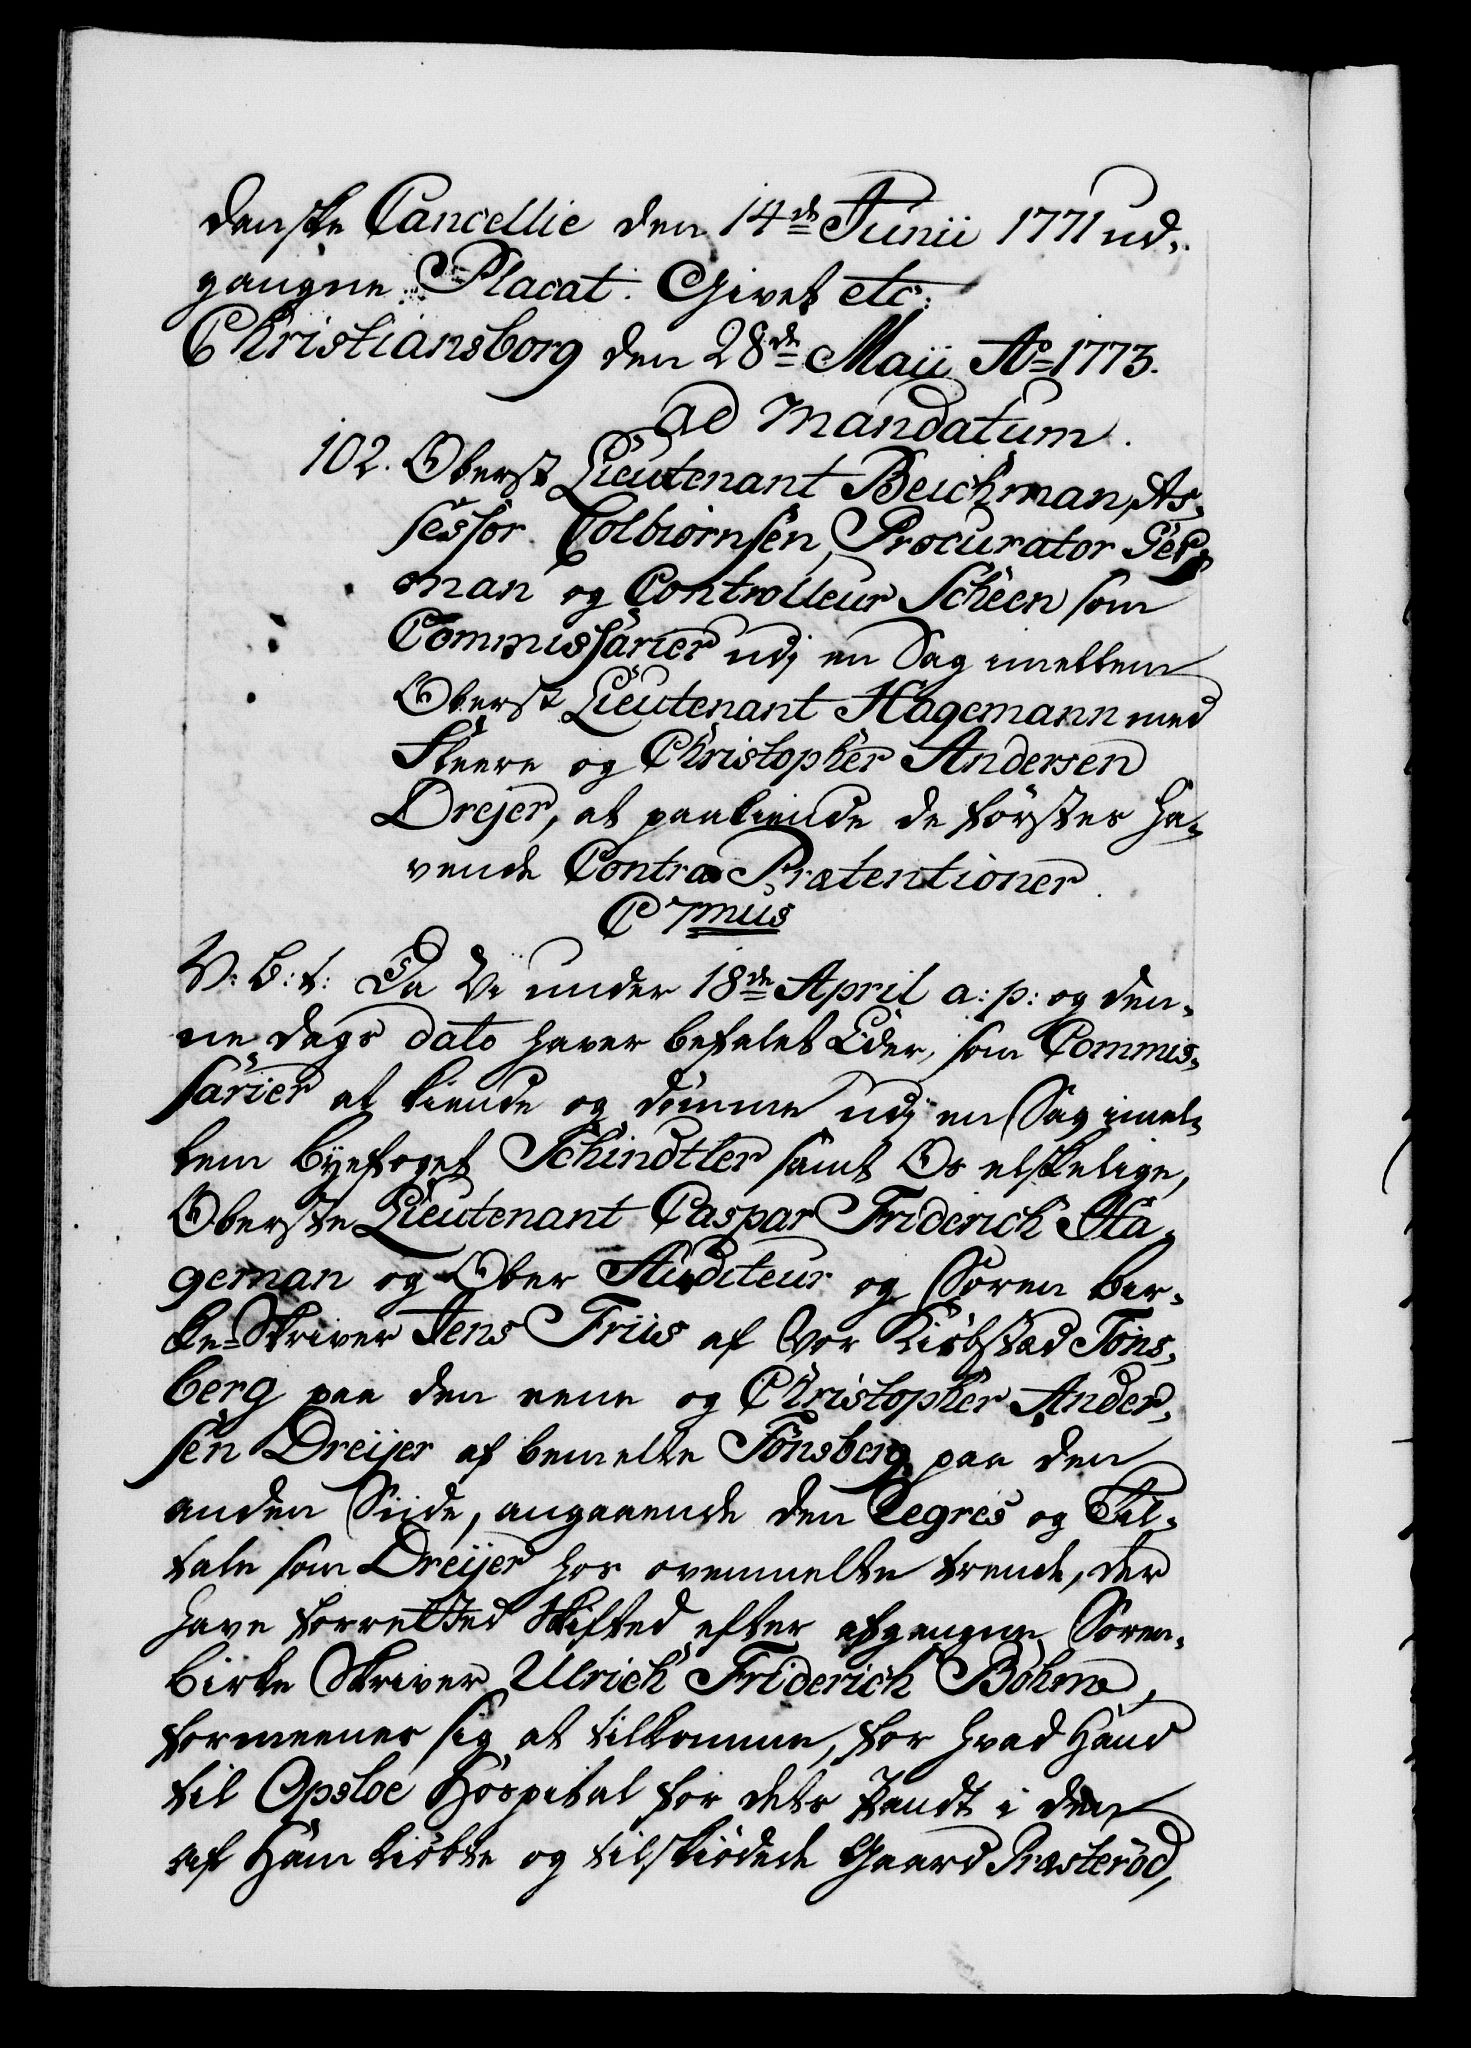 danske Cancellie den 14de Junii 1771 ud-
gangne Placat. Givet etc:
Christiansborg den 28de Maii Ao 1773.
ad Mandatum.
102. Oberst Lieutenant Beichman, As-
sessor Colbiørnsen, Procurator
man og Controlleur Scheen som
Commissarier udj en Sag imellem
Oberst Lieutenant Hagemann med
Fleere og Christopher Andersen
Drejer, at paakiende de førstes ha-
vende Contra Prætentioner.
C 7mus
V: G: t: Da Vi under 18de April a: p: og den-
ne Dags dato haver befalet Eder, som Commis-
sarier at kiende og dømme udj en Sag imel-
lem Byefoget Schindtler samt Os elskelige,
Oberste Lieutenant Caspar Friderich Ha-
geman og Ober Auditeur og Soren ber-
ke-Skriver Jens Friis af Vor Kiøbstad Tøns-
berg paa den eene og Christopher Ander-
sen Dreijer af bemelte Tønsberg paa den
anden Siide, angaaende den Regres og Til-
tale som Dreijer hos ovenmelte trende, der
have forretted Skifted efter afgangne Soren-
birke Skriver Ulrich Friderich Bøhme,
formeener sig at tilkomme, for hvad Hand
til Opsloe Hospital for dets Pandt i den
af Ham kiøbte og tilskiødede Gaard Præsterød,